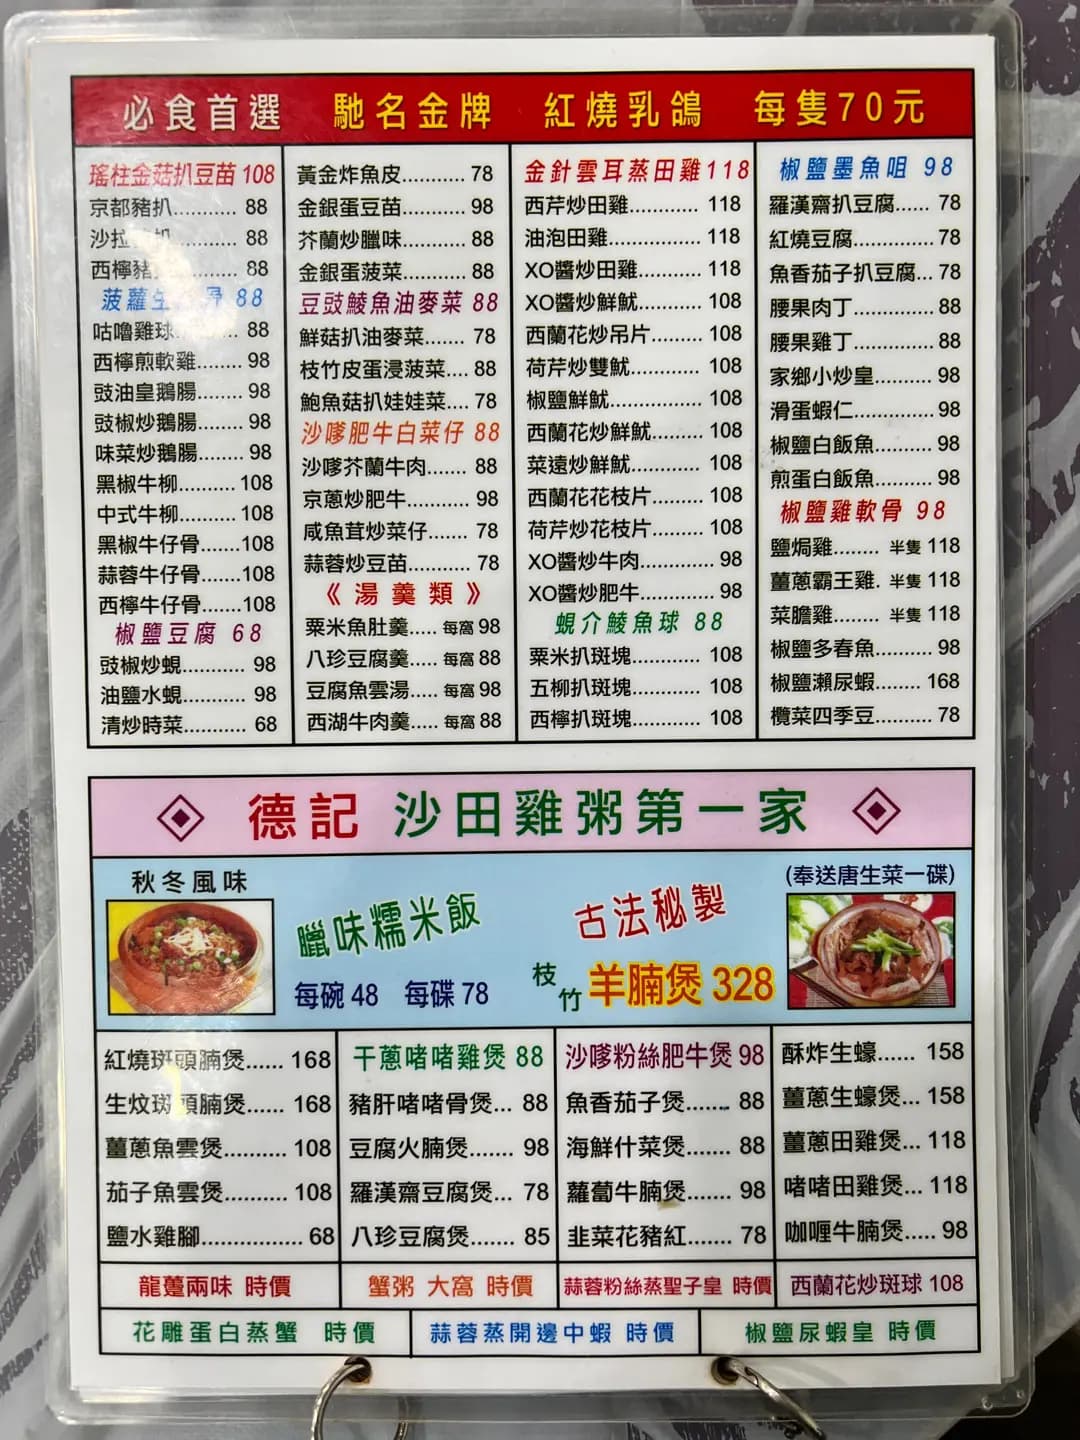 必食首選 馳名金牌 紅燒乳鴿 每隻70元
瑤柱金菇扒豆苗 108
京都豬扒........... 88
沙拉 扒........... 88
西檸豬 ........ 88
菠蘿生 骨 88
咕嚕雞球........... 88
西檸煎軟雞........ 98
豉油皇鵝腸........ 98
豉椒炒鵝腸........ 98
味菜炒鵝腸........ 98
黑椒牛柳.......... 108
中式牛柳.......... 108
黑椒牛仔骨.......108
蒜蓉牛仔骨.......108
西檸牛仔骨.......108
椒鹽豆腐 68
豉椒炒蜆........... 98
油鹽水蜆........... 98
清炒時菜........... 68
黃金炸魚皮........... 78
金銀蛋豆苗........... 98
芥蘭炒臘味........... 88
金銀蛋菠菜........... 88
豆豉鯪魚油麥菜 88
鮮菇扒油麥菜....... 78
枝竹皮蛋浸菠菜.... 88
鮑魚菇扒娃娃菜.... 78
沙嗲肥牛白菜仔 88
沙嗲芥蘭牛肉....... 88
京蔥炒肥牛........... 98
咸魚茸炒菜仔....... 78
蒜蓉炒豆苗........... 78
《湯羹類》
粟米魚肚羹..... 每窩 98
八珍豆腐羹..... 每窩 88
豆腐魚雲湯..... 每窩 98
西湖牛肉羹..... 每窩 88
金針雲耳蒸田雞 118
西芹炒田雞............ 118
油泡田雞................ 118
XO醬炒田雞........... 118
XO醬炒鮮魷........... 108
西蘭花炒吊片......... 108
荷芹炒雙魷............ 108
椒鹽鮮魷................ 108
西蘭花炒鮮魷......... 108
菜遠炒鮮魷............ 108
西蘭花花枝片......... 108
荷芹炒花枝片......... 108
XO醬炒牛肉............. 98
XO醬炒肥牛............. 98
蜆介鯪魚球 88
粟米扒斑塊............ 108
五柳扒斑塊............ 108
西檸扒斑塊............ 108
椒鹽墨魚咀 98
羅漢齋扒豆腐...... 78
紅燒豆腐.............. 78
魚香茄子扒豆腐... 78
腰果肉丁.............. 88
腰果雞丁.............. 88
家鄉小炒皇.......... 98
滑蛋蝦仁.............. 98
椒鹽白飯魚.......... 98
煎蛋白飯魚.......... 98
椒鹽雞軟骨 98
鹽焗雞........ 半隻 118
薑蔥霸王雞. 半隻 118
菜膽雞........ 半隻 118
椒鹽多春魚.......... 98
椒鹽瀨尿蝦........ 168
欖菜四季豆.......... 78
德記 沙田雞粥第一家
秋冬風味
臘味糯米飯
每碗 48 每碟 78
古法秘製
枝竹 羊腩煲 328
(奉送唐生菜一碟)
紅燒斑頭腩煲...... 168
生炆斑頭腩煲...... 168
薑蔥魚雲煲.......... 108
茄子魚雲煲.......... 108
鹽水雞腳................ 68
干蔥啫啫雞煲 88
豬肝啫啫骨煲... 88
豆腐火腩煲....... 98
羅漢齋豆腐煲... 78
八珍豆腐煲....... 85
沙嗲粉絲肥牛煲 98
魚香茄子煲....... 88
海鮮什菜煲....... 88
蘿蔔牛腩煲....... 98
韭菜花豬紅....... 78
酥炸生蠔...... 158
薑蔥生蠔煲... 158
薑蔥田雞煲... 118
啫啫田雞煲... 118
咖喱牛腩煲..... 98
龍躉兩味 時價
蟹粥 大窩 時價
蒜蓉粉絲蒸聖子皇 時價
西蘭花炒斑球 108
花雕蛋白蒸蟹 時價
蒜蓉蒸開邊中蝦 時價
椒鹽尿蝦皇 時價